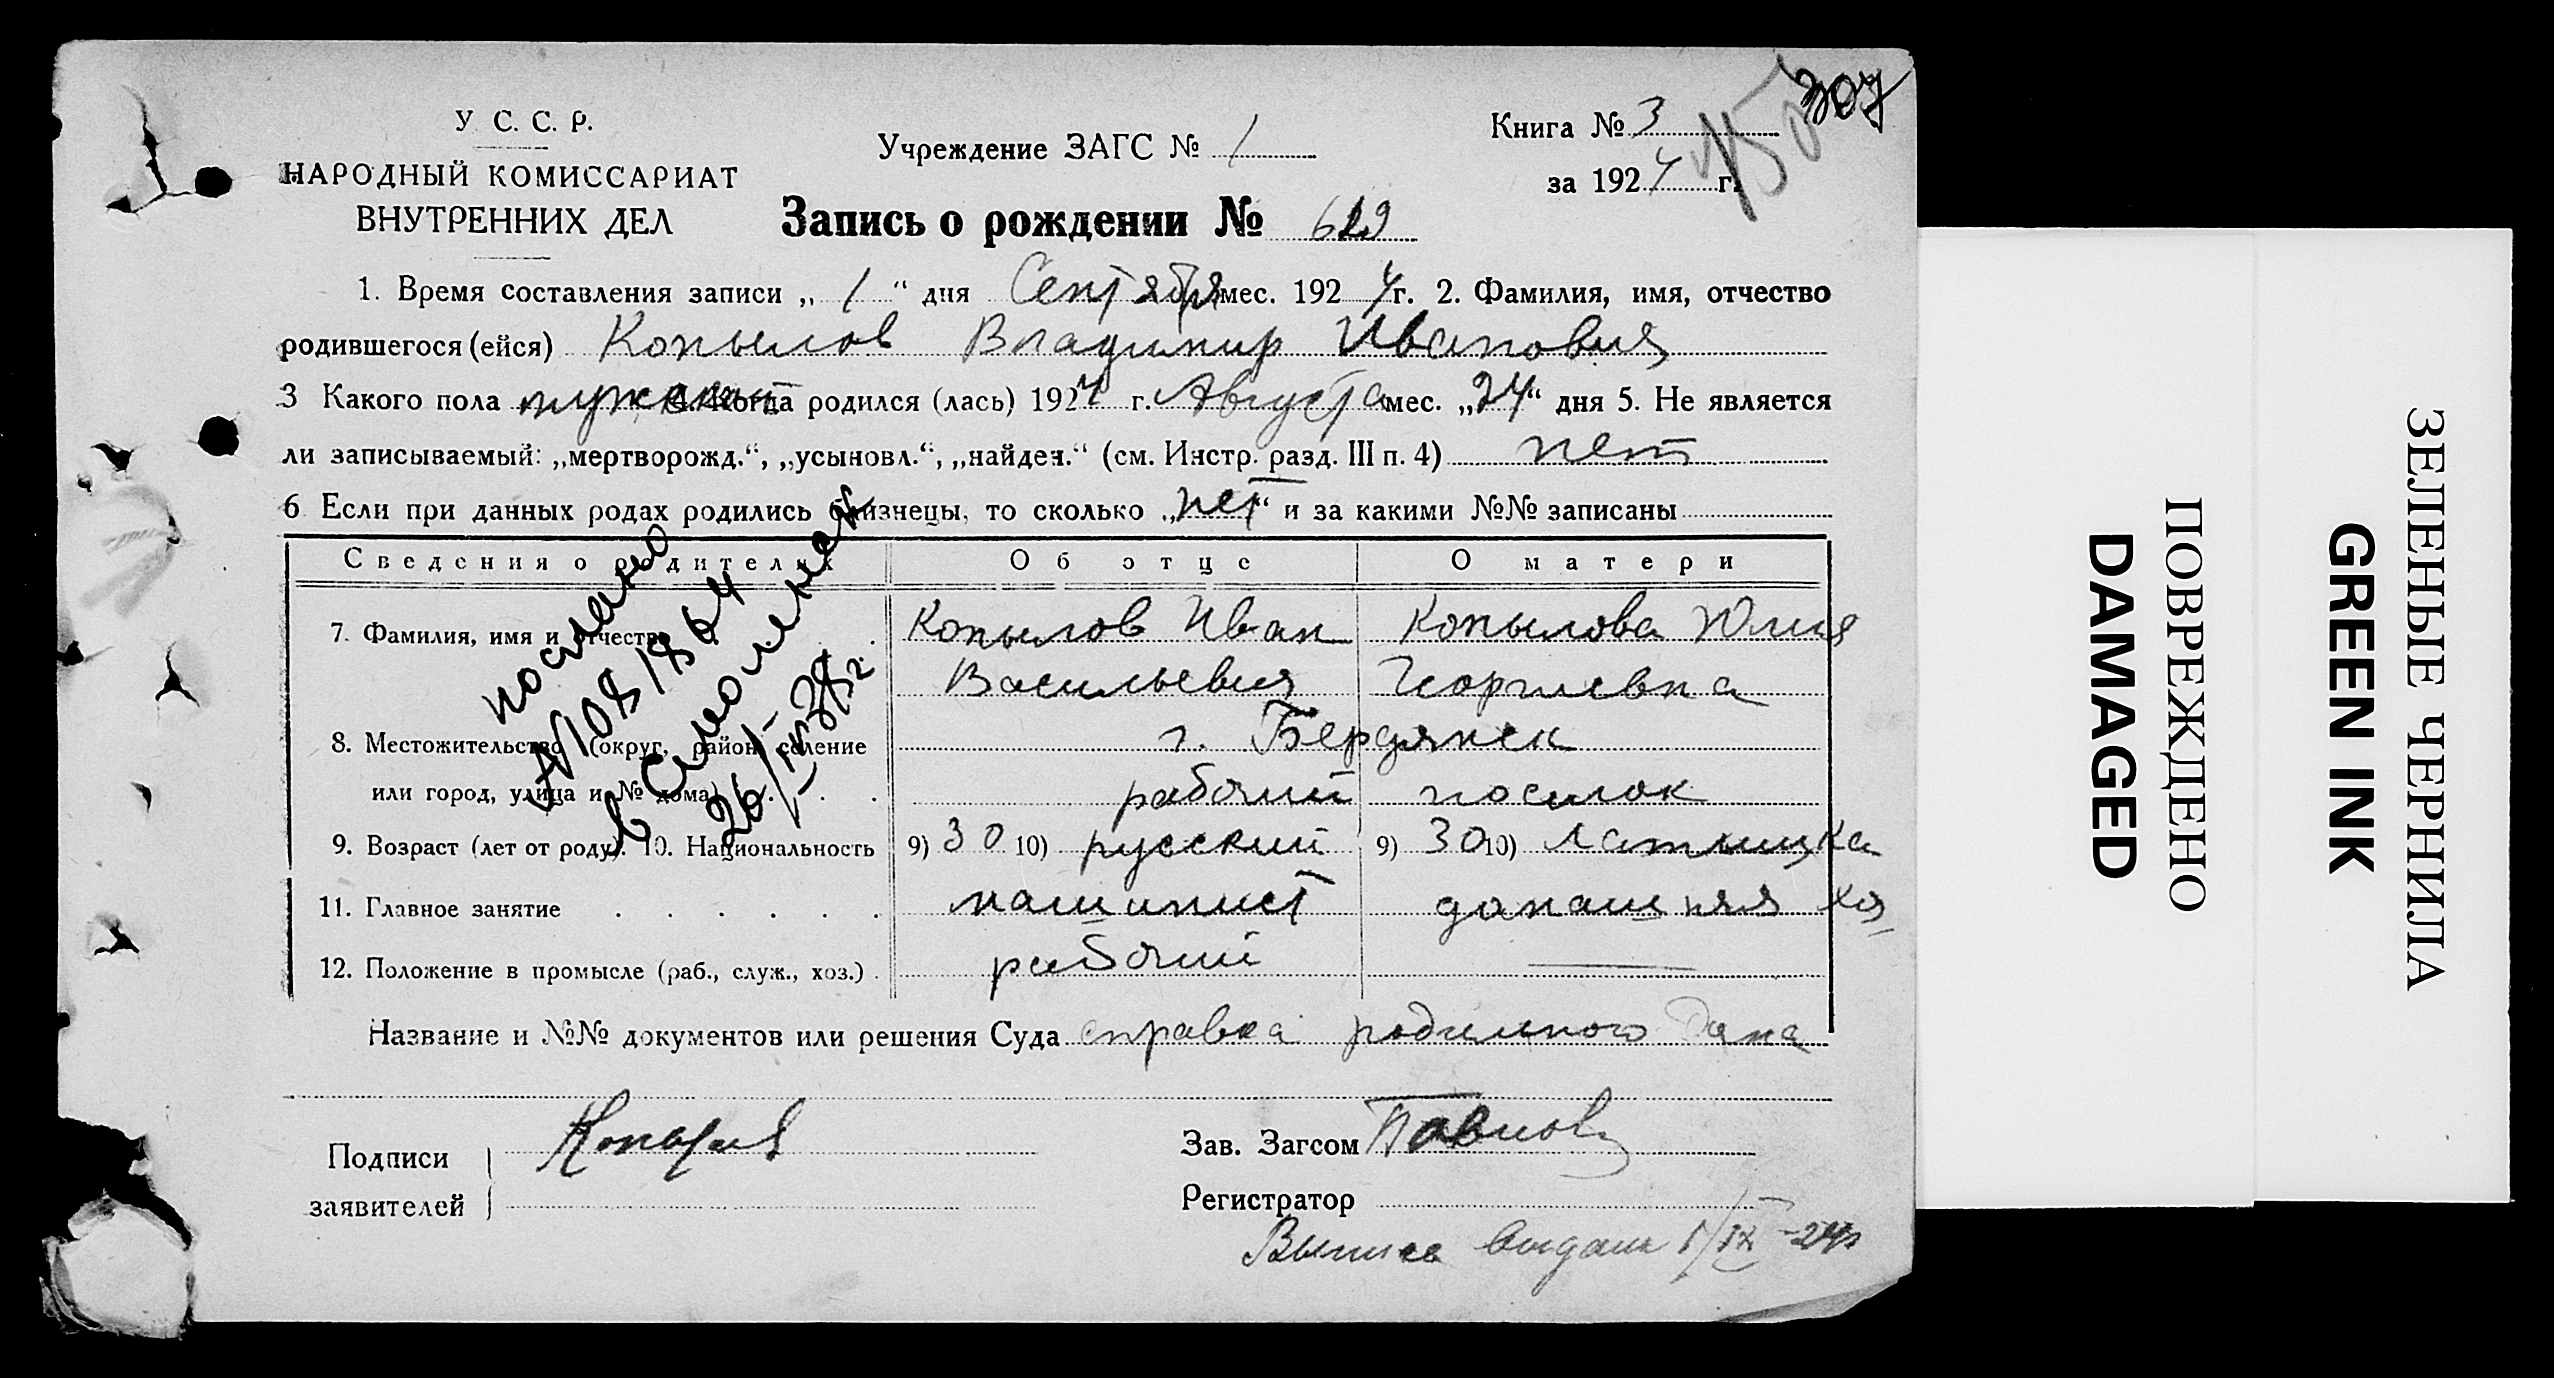 307
450
У. С. С. Р.
НАРОДНЫЙ КОМИССАРИАТ
ВНУТРЕННИХ ДЕЛ
Учреждение ЗАГС № 1
Книга № 3
за 1924 г.
Запись о рождении № 619
1. Время составления записи „ 1 “ дня Сентября мес. 1924 г. 2. Фамилия, имя, отчество
родившегося (ейся) Копылов Владимир Иванович
3 Какого пола мужской 4. Когда родился (лась) 1924 г. Августа мес. „24“ дня 5. Не является
ли записываемый: „мертворожд.“, „усыновл.“, „найден.“ (см. Инстр. разд. III п. 4) нет
6 Если при данных родах родились близнецы, то сколько „нет“ и за какими №№ записаны
Сведения о родителях Об отце О матери
7. Фамилия, имя и отчество Копылов Иван Копылова Юлия
Васильевич Георгиевна
8. Местожительство (округ, район, селение г. Бердянск
или город, улица и № дома) рабочий поселок
9. Возраст (лет от роду). 10. Национальность 9) 30 10) русский 9) 30 10) латышка
11. Главное занятие машинист домашняя хоз
12. Положение в промысле (раб., служ., хоз.) рабочий —
послано
№108/1864
в Смоленск
26/IX-38г.
Название и №№ документов или решения Суда справка родильного Дома
Подписи
заявителей
Копылов
Зав. Загсом Павлов
Регистратор
Выпись выдана 1/IX-24г
ПОВРЕЖДЕНО
DAMAGED
ЗЕЛЕНЫЕ ЧЕРНИЛА
GREEN INK